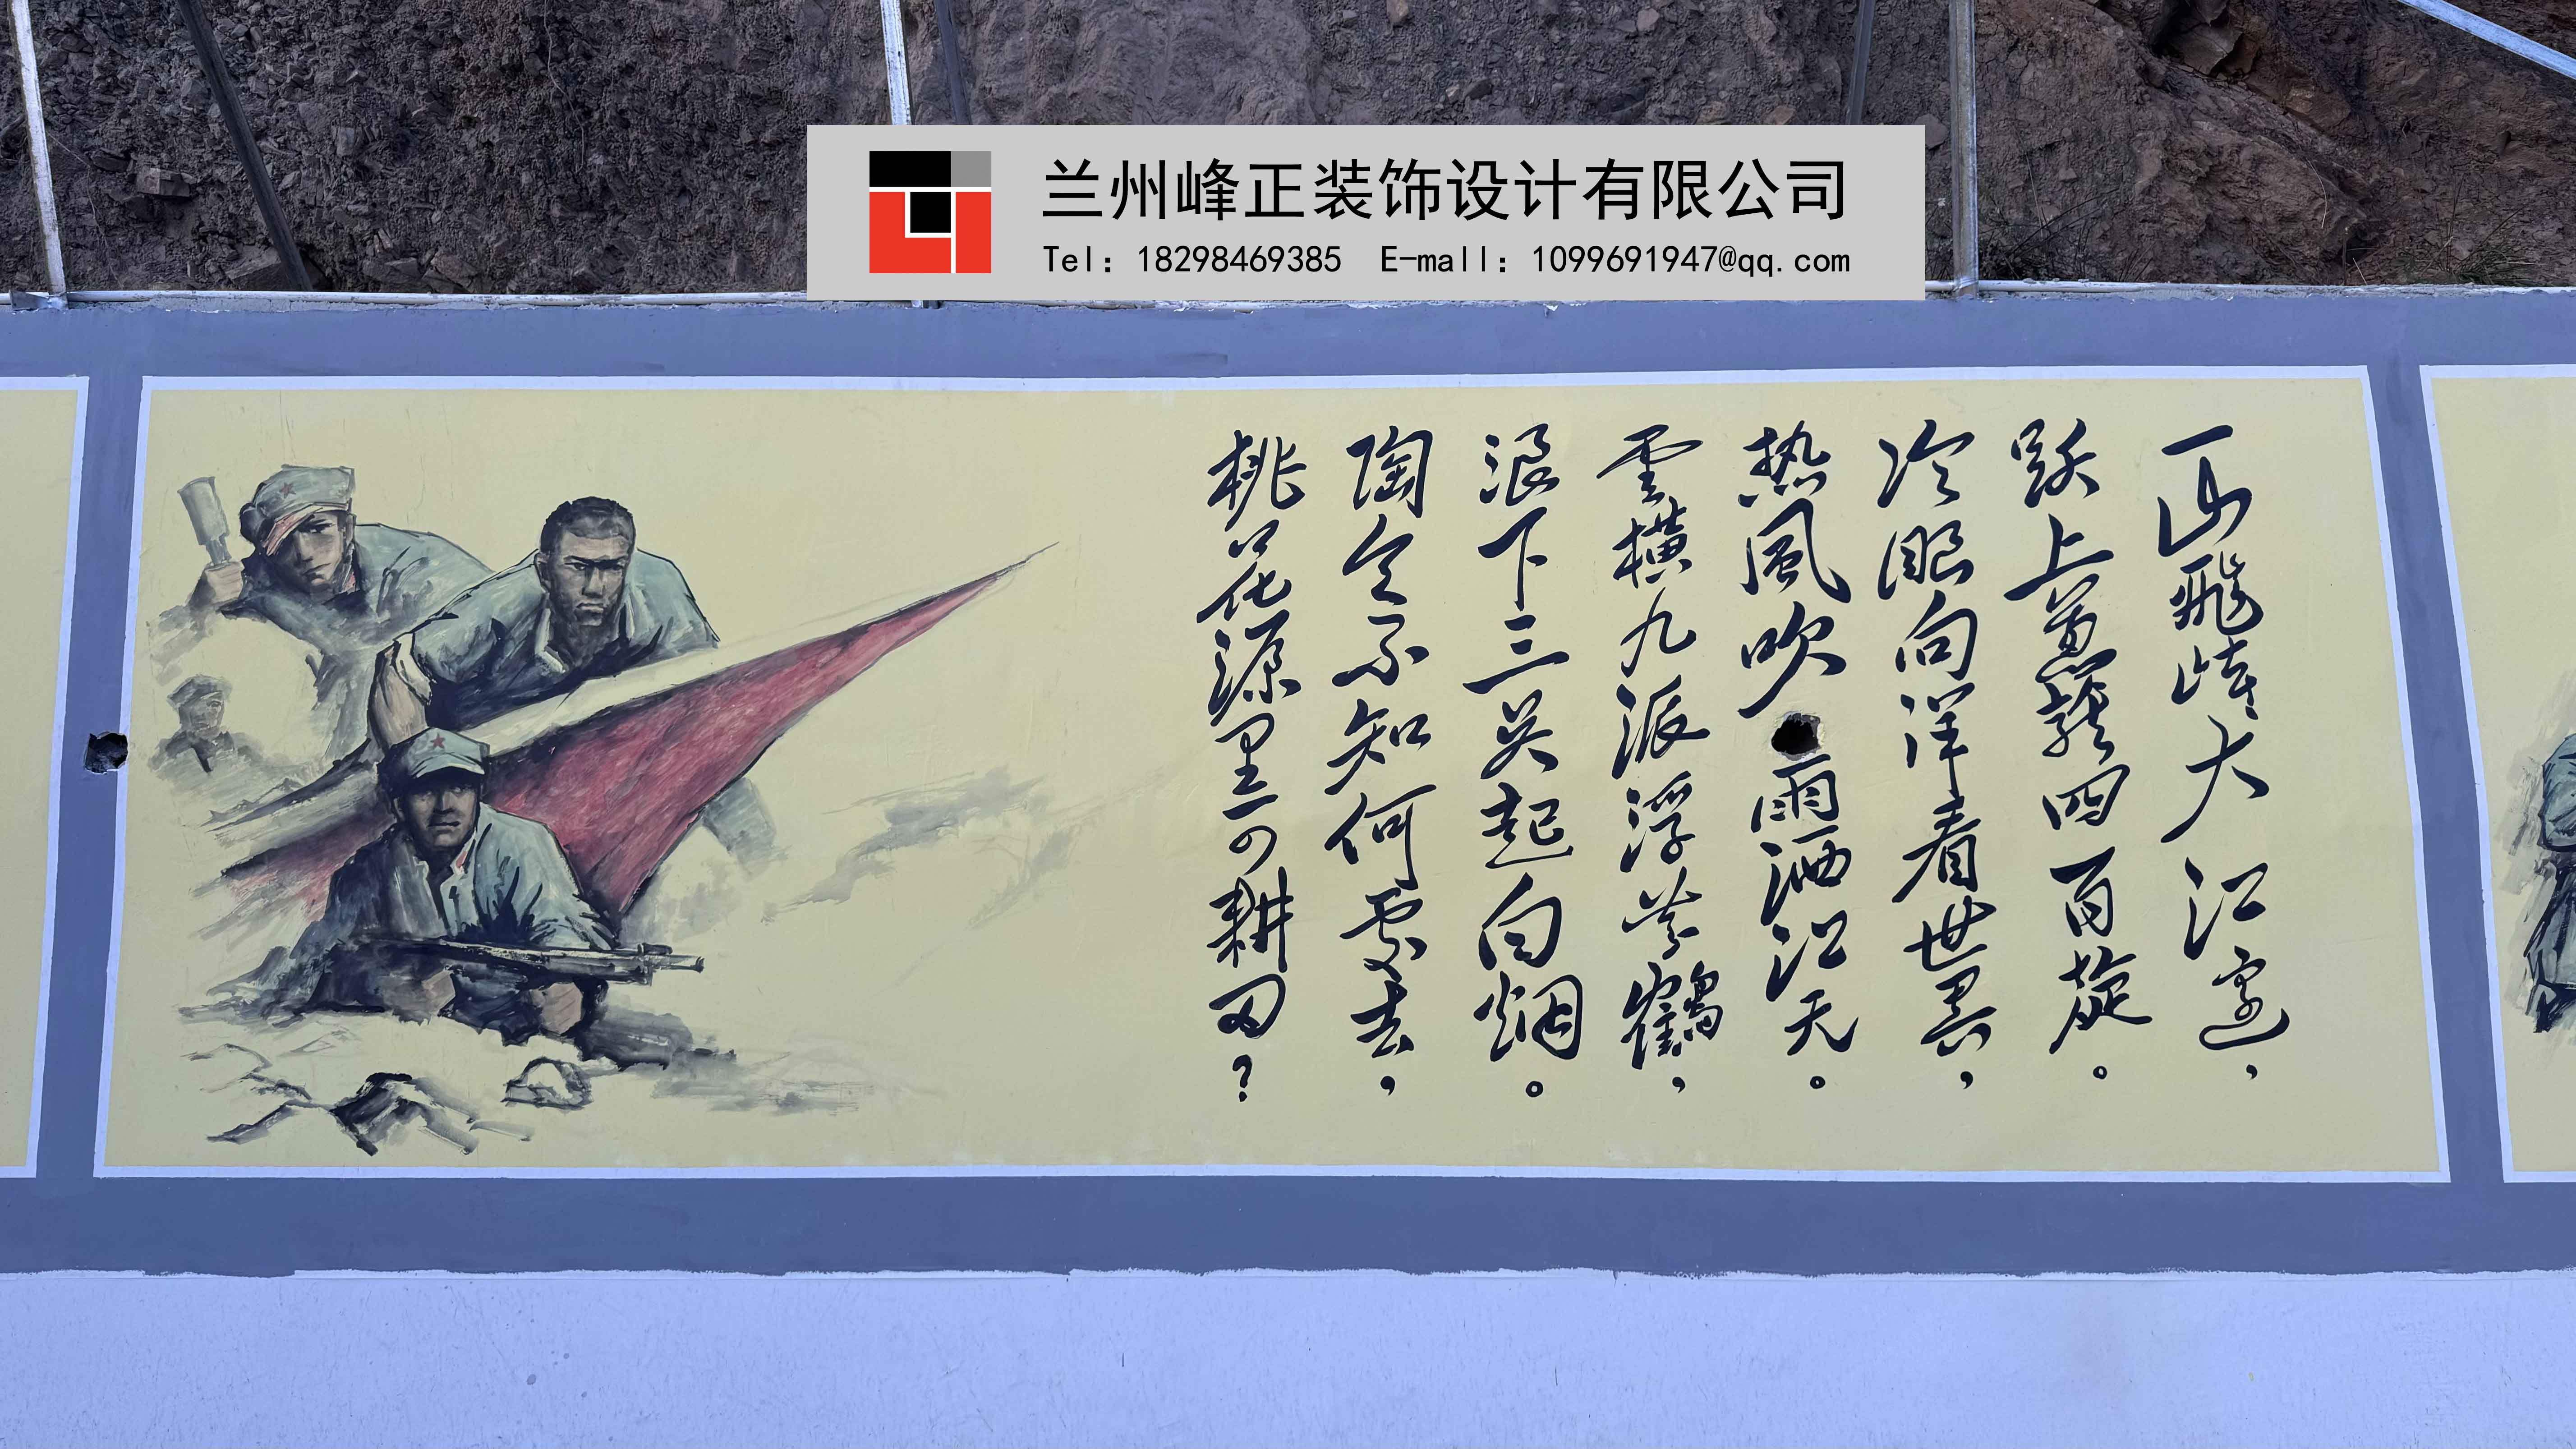 兰州峰正装饰设计有限公司
Tel：18298469385 E-mall：1099691947@qq.com
一山飛峙大江邊，
跃上葱蘢四百旋。
冷眼向洋看世界，
热風吹雨洒江天。
雲横九派浮黄鶴，
浪下三吴起白烟。
陶令不知何處去，
桃花源里可耕田？